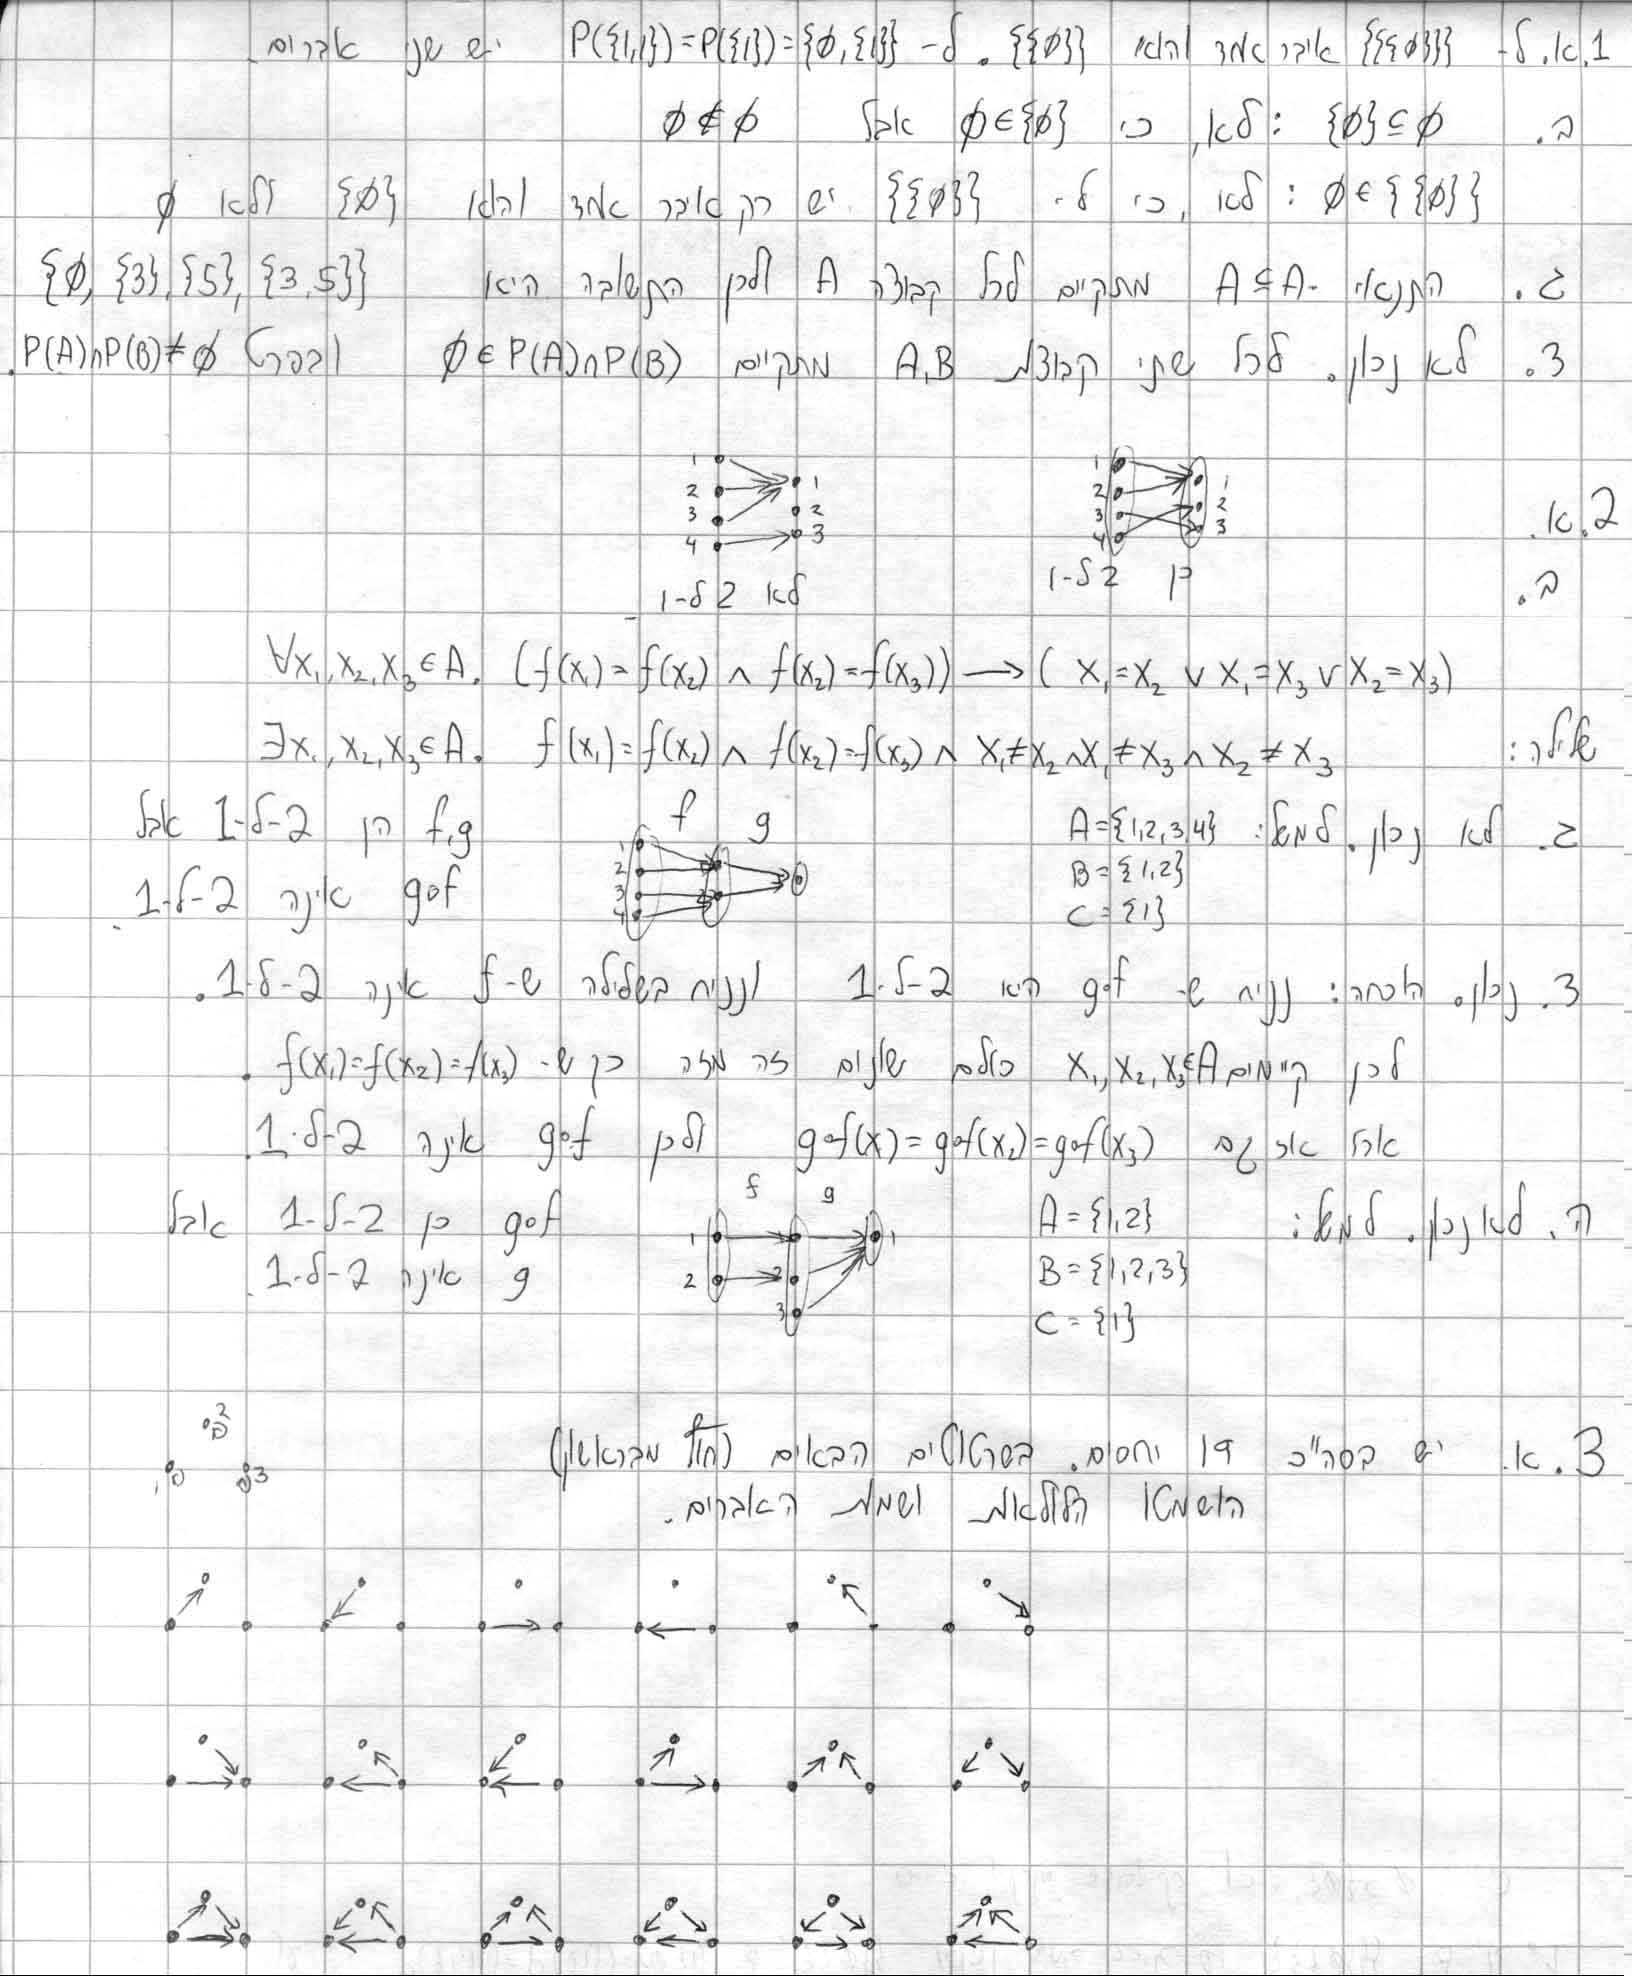 1.א. ל- {{{∅}}} איבר אחד והוא {{∅}}. ל- P({1,1})=P({1})={∅,{1}} יש שני אברים.
ב. {∅}⊆∅ : לא, כי ∅∈{∅} אבל ∅∉∅
∅∈{{∅}} : לא, כי ל- {{∅}} יש רק איבר אחד והוא {∅} ולא ∅
ג. התנאי A⊆A מתקיים לכל קבוצה A ולכן התשובה היא {∅, {3}, {5}, {3,5}}
ד. לא נכון. לכל שתי קבוצות A,B מתקיים ∅∈P(A)∩P(B) ובפרט P(A)∩P(B)≠∅.
2.א.
1 2 3 4 1 2 3
1 2 3 4 1 2 3
כן 2 ל-1
לא 2 ל-1
ב.
∀x₁,x₂,x₃∈A. (f(x₁)=f(x₂) ∧ f(x₂)=f(x₃)) → (x₁=x₂ ∨ x₁=x₃ ∨ x₂=x₃)
שלילה: ∃x₁,x₂,x₃∈A. f(x₁)=f(x₂) ∧ f(x₂)=f(x₃) ∧ x₁≠x₂ ∧ x₁≠x₃ ∧ x₂≠x₃
ג. לא נכון. למשל: A={1,2,3,4} f g f,g הן 2-ל-1 אבל
B={1,2} 1 2 3 4
C={1} gof אינה 2-ל-1.
ד. נכון. הוכחה: נניח ש- gof היא 2-ל-1 ונניח בשלילה ש-f אינה 2-ל-1.
לכן קיימים x₁,x₂,x₃∈A כולם שונים זה מזה כך ש- f(x₁)=f(x₂)=f(x₃).
אבל אז גם gof(x)=gof(x₂)=gof(x₃) ולכן gof אינה 2-ל-1.
ה. לא נכון. למשל: A={1,2} f g gof כן 2-ל-1 אבל
B={1,2,3} 1 2 2 3 1 g אינה 2-ל-1.
C={1}
3.א. יש בסה"כ 19 יחסים. בשרטוטים הבאים (חוץ מבראשון)
הושמטו הלולאות ושמות האברים.
1 2 3